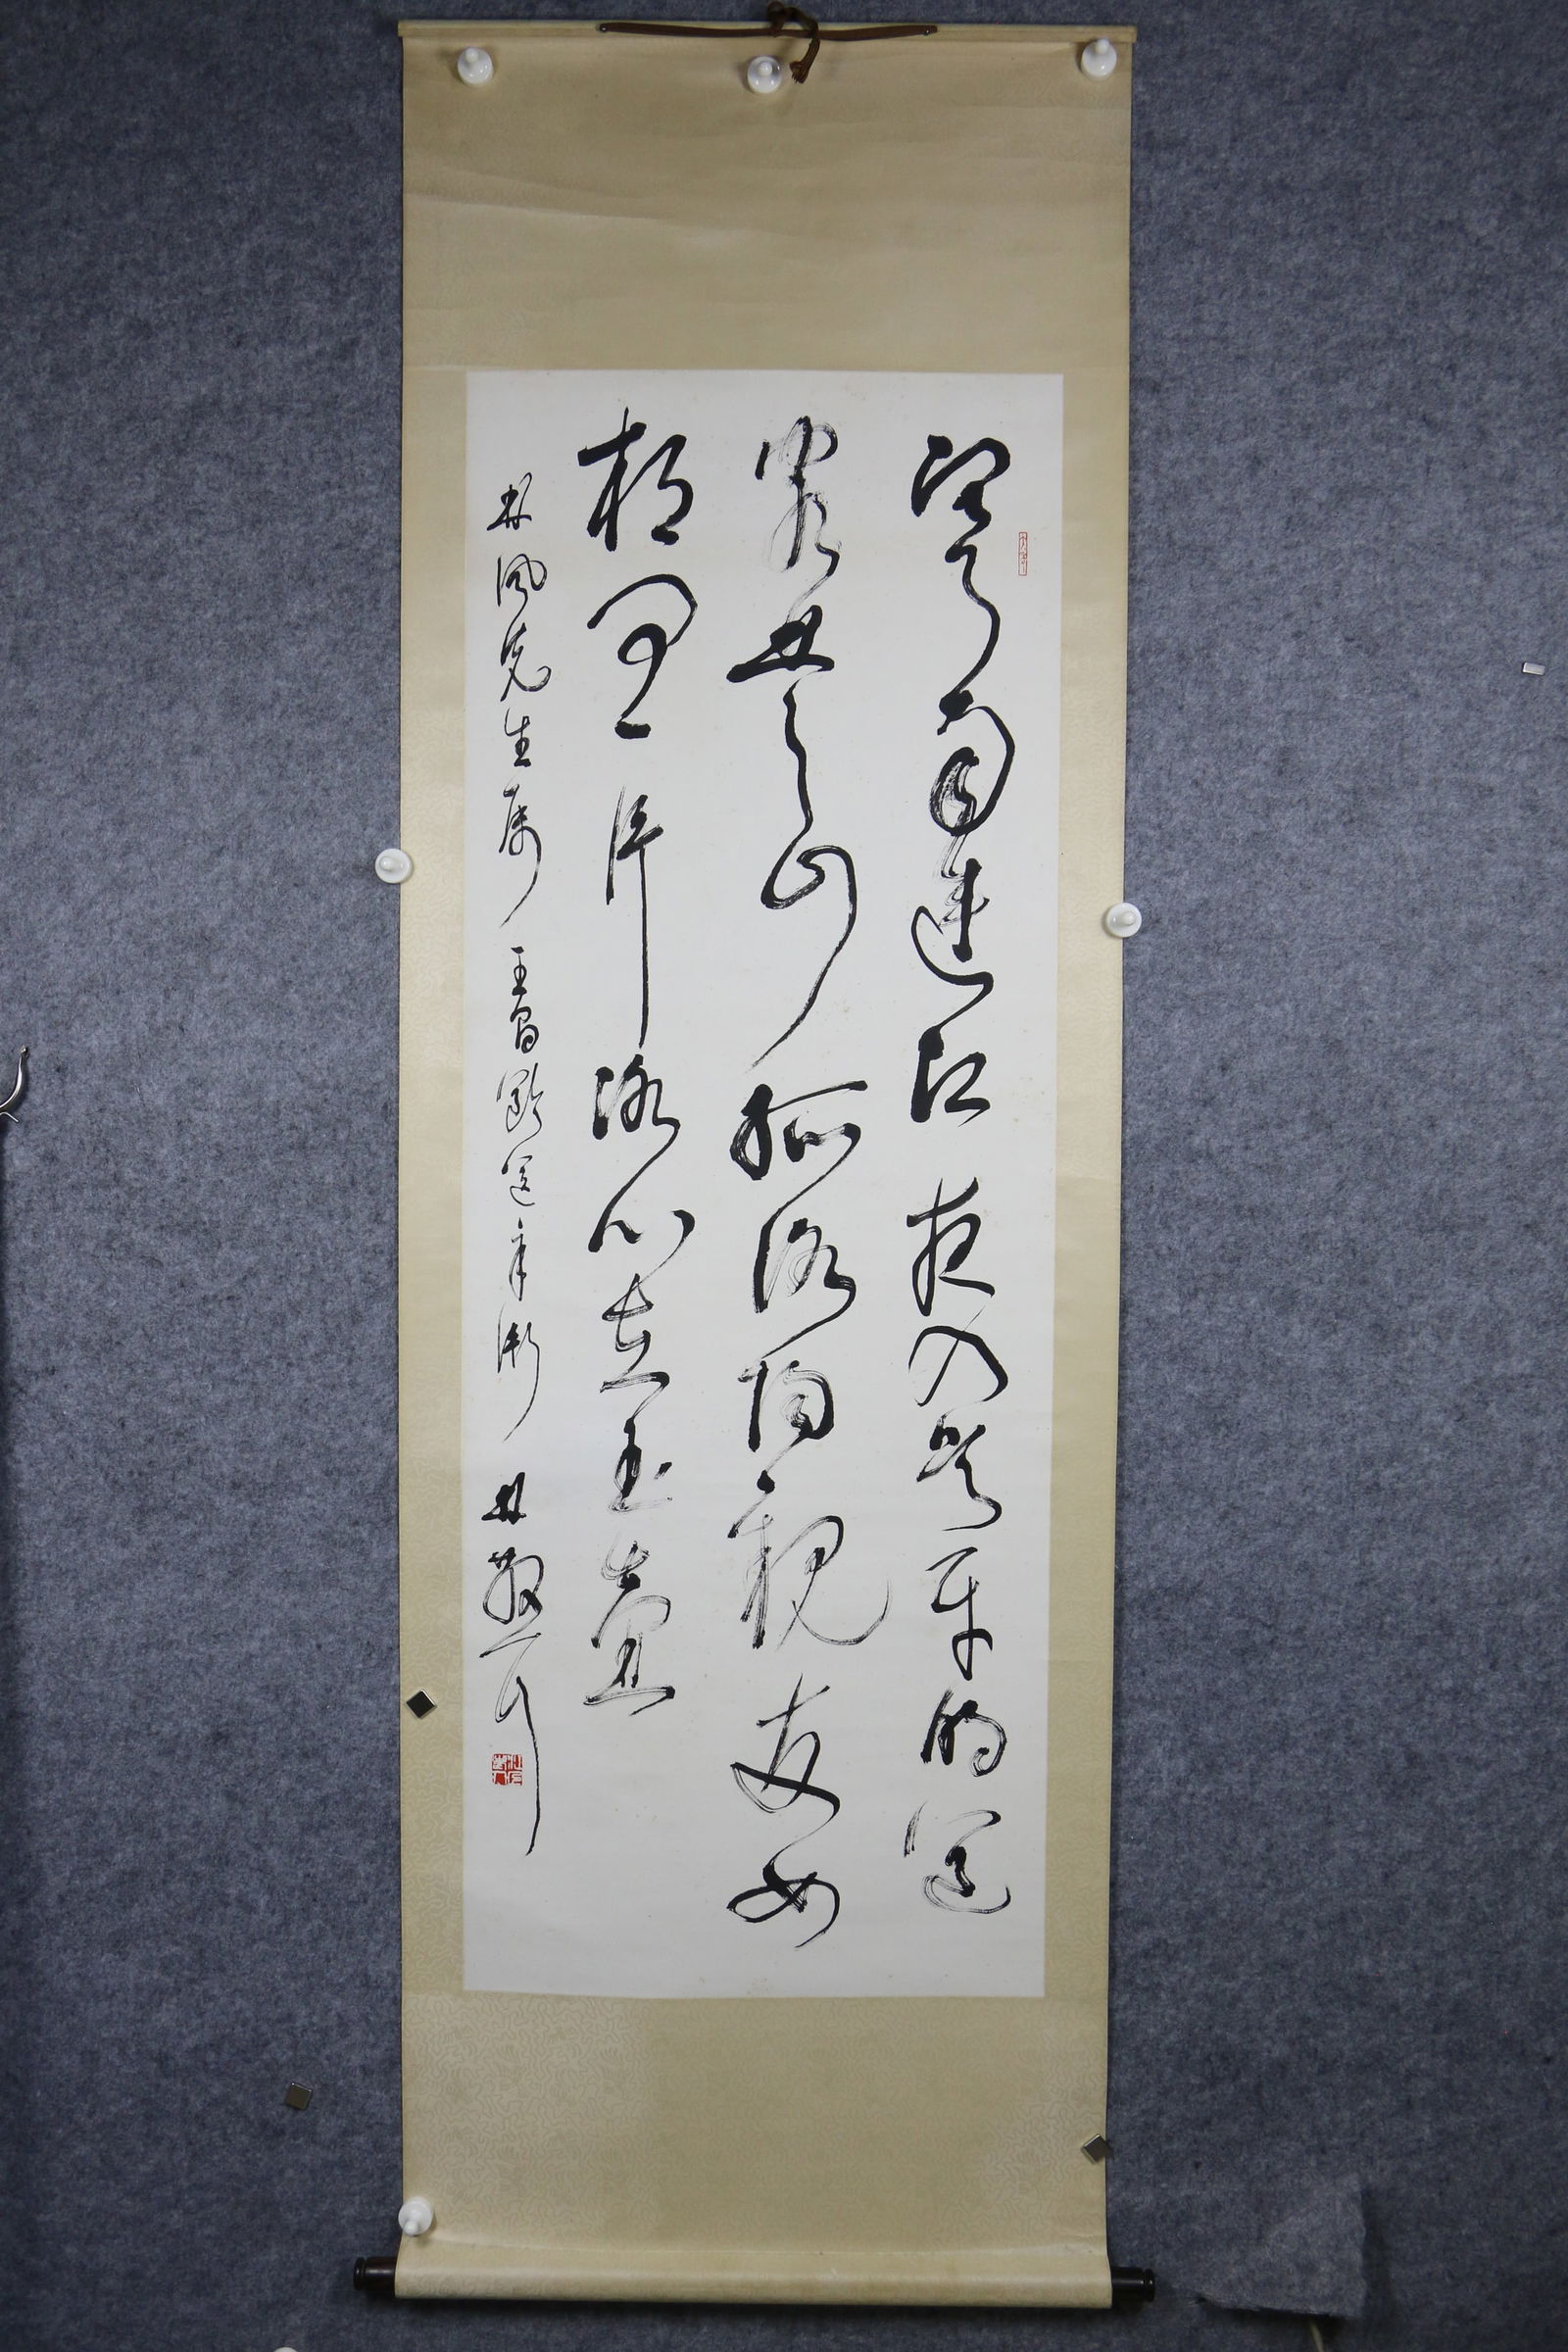 寒雨連江夜入吴平明送
客楚山孤洛陽親友如
相問一片冰心在玉壺
林風先生属 王昌齡送辛漸 林散耳